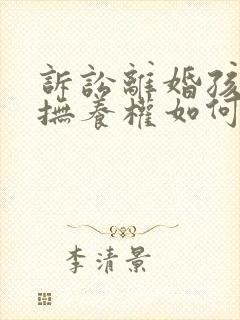 訴訟離婚孩
撫養權如何
李清景